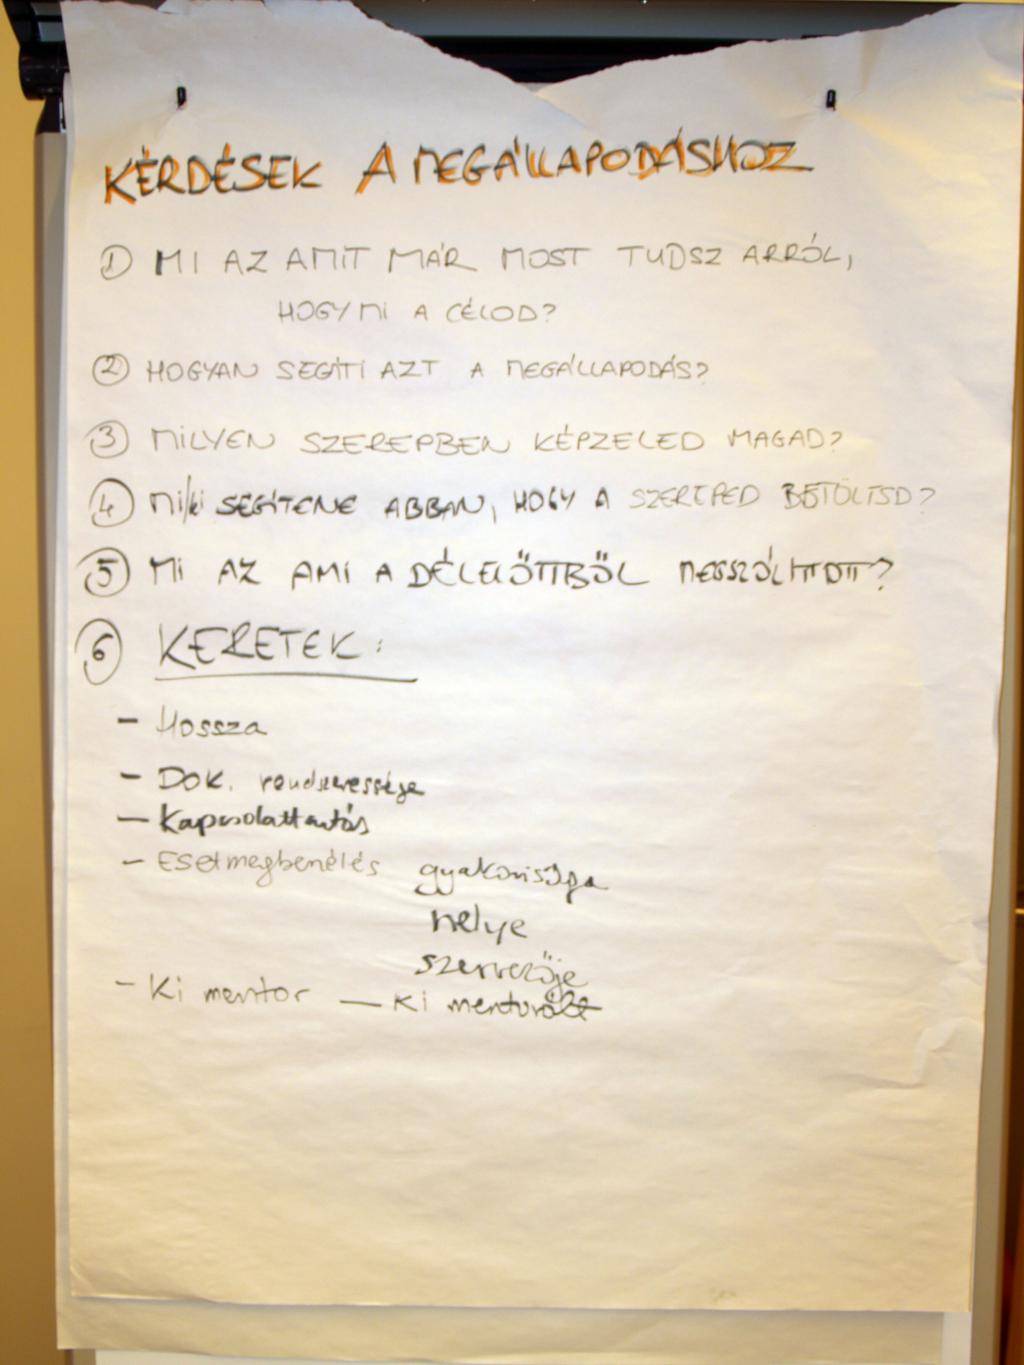 KÉRDÉSEK A MEGÁLLAPODÁSHOZ
① MI AZ AMIT MÁR MOST TUDSZ ARRÓL,
HOGY MI A CÉLOD?
② HOGYAN SEGÍTI AZT A MEGÁLLAPODÁS?
③ MILYEN SZEREPBEN KÉPZELED MAGAD?
④ MI/ki SEGÍTENE ABBAN, HOGY A SZEREPED BETÖLTSD?
⑤ MI AZ AMI A DÉLELŐTTBŐL MEGSZÓLÍTOTT?
⑥ KERETEK:
- Hossza
- DOK. rendszeressége
- Kapcsolattartás
- Esetmegbeszélés gyakorisága
helye
szervezője
- Ki mentor - Ki mentorált